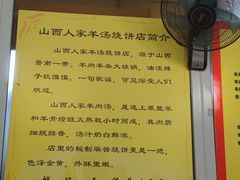 山西人家羊汤烧饼店简介
山西人家羊汤烧饼店，源于山西
晋南一带。羊肉羊杂大铁锅，油泼辣
子软馍馍。一句歌谣，可见深受人们
欢迎。
山西人家羊肉汤，是选上乘整羊
和羊骨经旺火熬数小时而成，其肉质
细腻醇香，汤汁奶白鲜浓。
店里的秘制麻酱烧饼更是一绝，
色泽金黄，外酥里嫩。